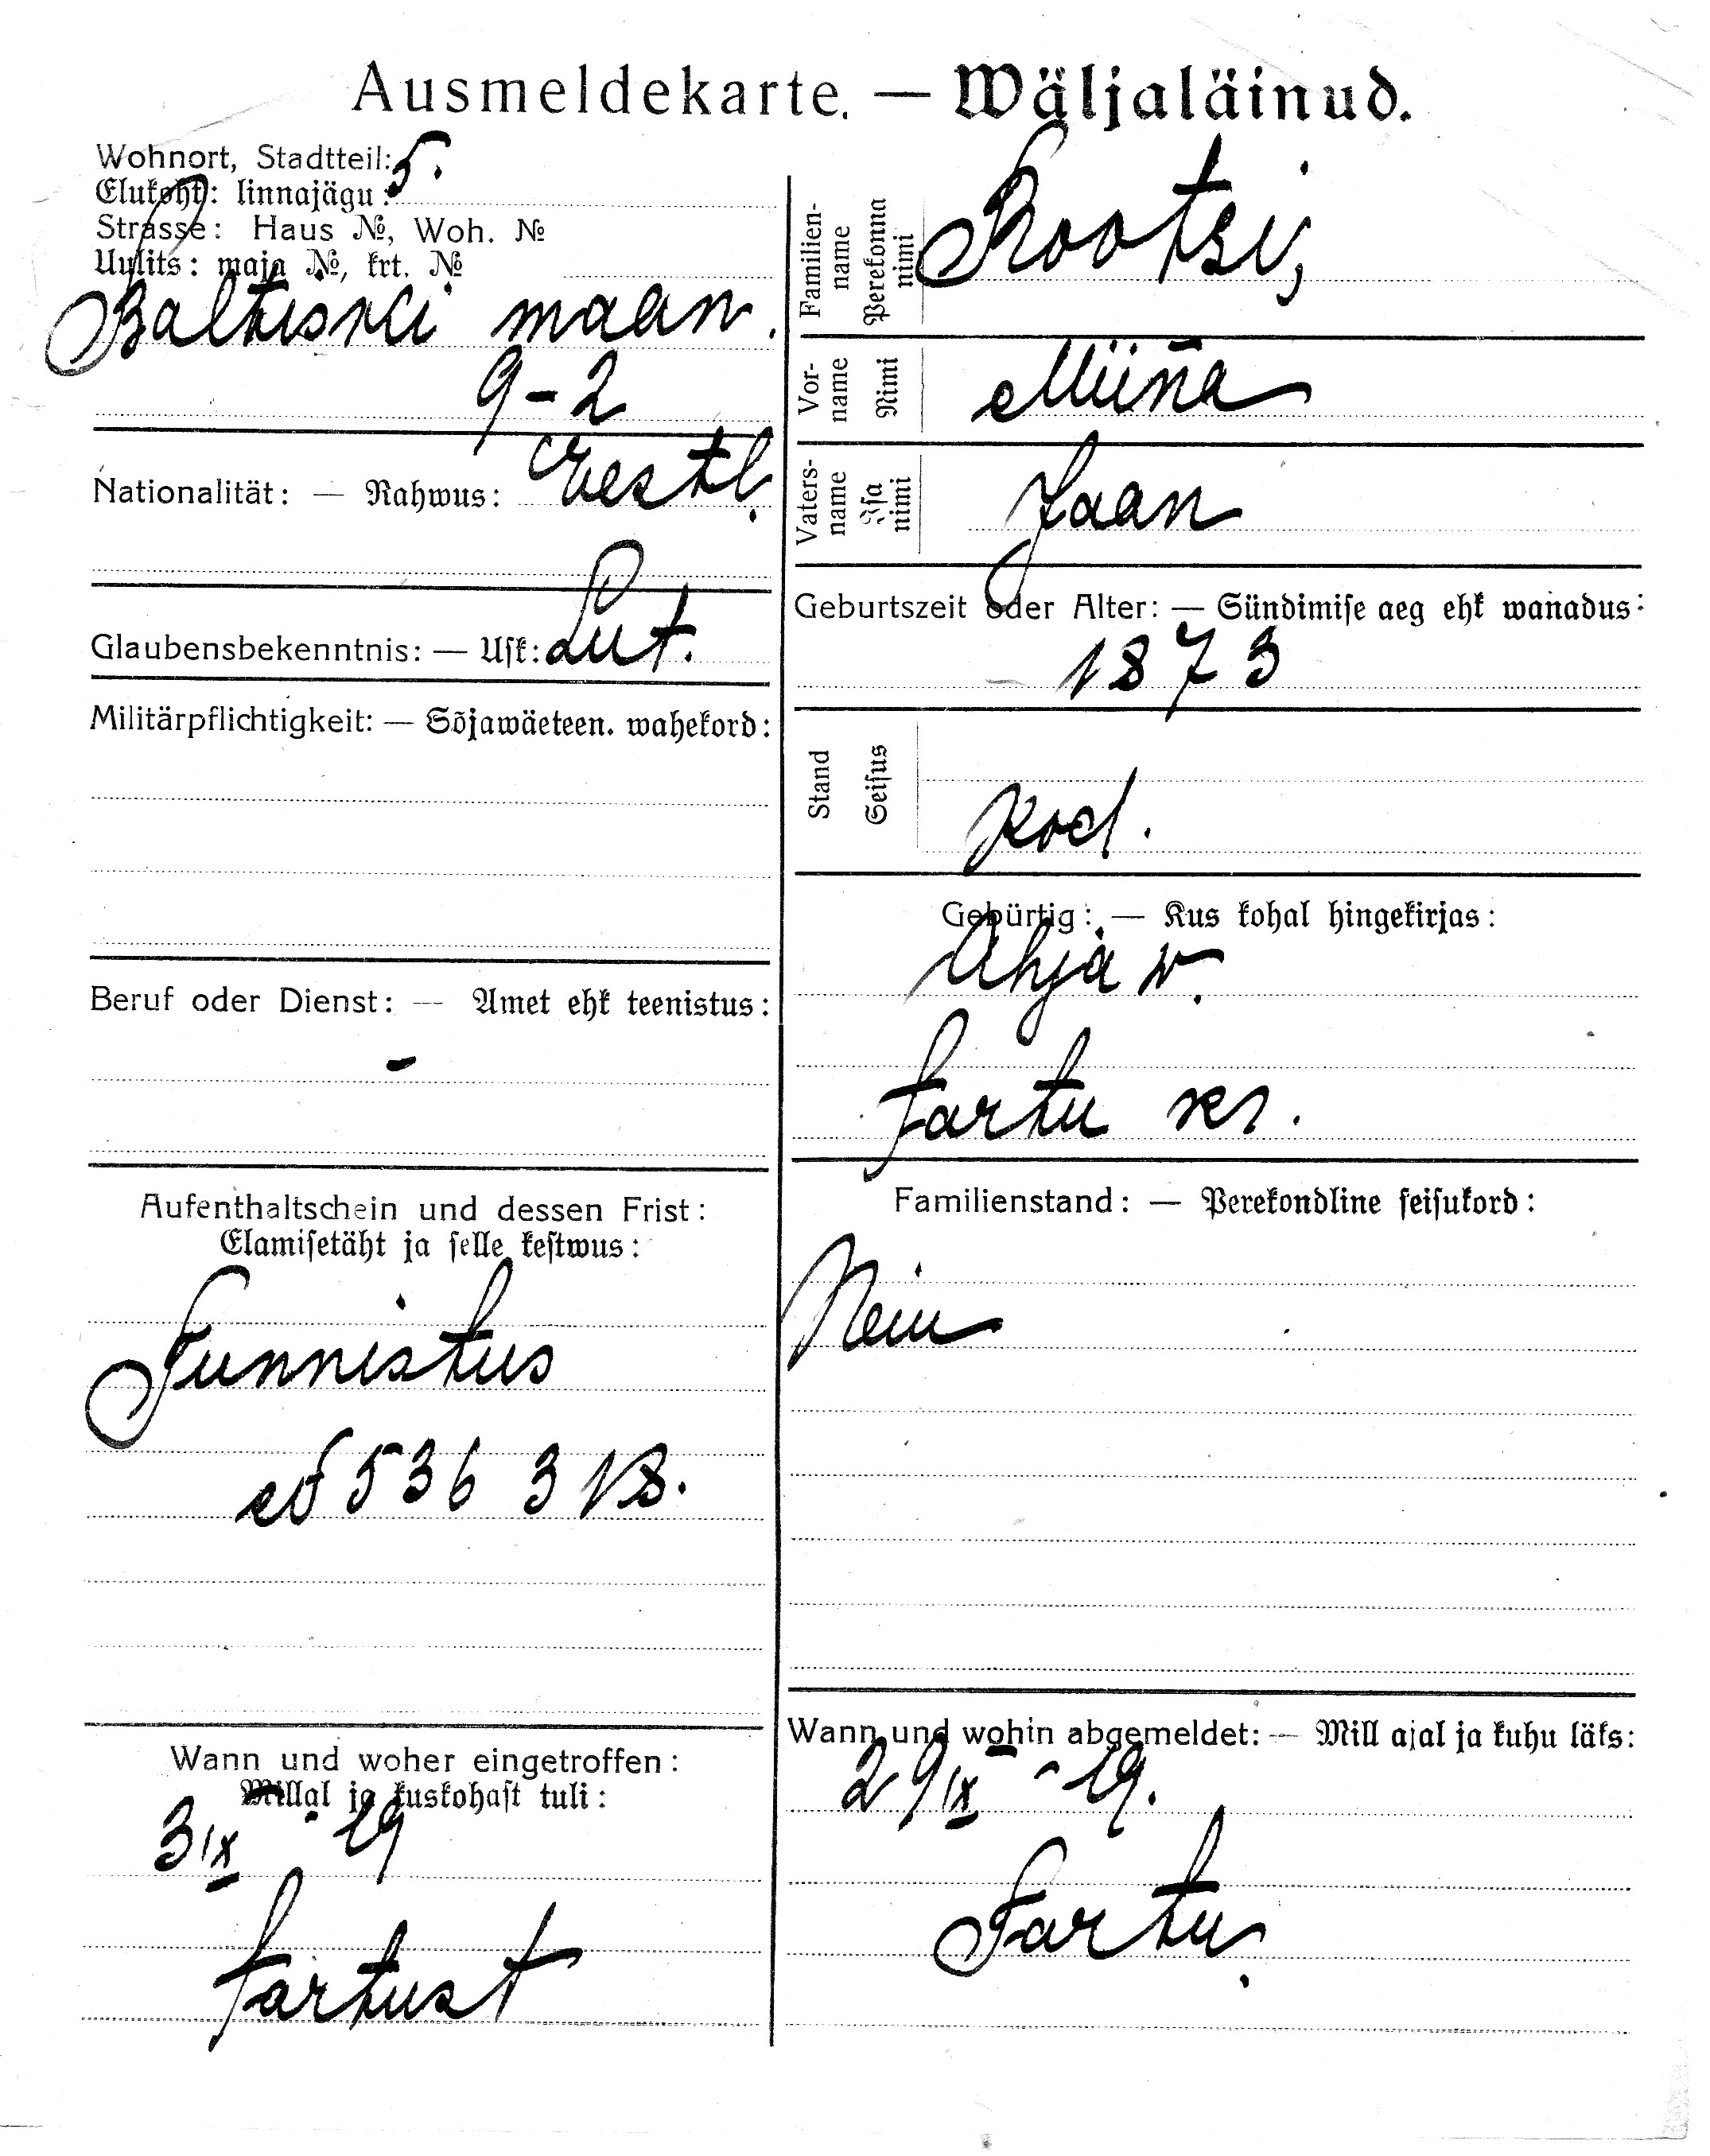 Ausmeldekarte. — Wäljaläinud.
Wohnort, Stadtteil: 5.
Elukoht: linnajägu:
Strasse: Haus №, Woh. №
Uulits: maja №, krt. №
Baltiski maan.
9-2
Nationalität: — Rahwus: Eestl.
Glaubensbekenntnis: — Usk: Lut.
Militärpflichtigkeit: — Sõjawäeteen. wahekord:
Beruf oder Dienst: — Amet ehk teenistus:
-
Aufenthaltschein und dessen Frist:
Elamisetäht ja selle kestwus:
Tunnistus
№ 536 3 18.
Wann und woher eingetroffen:
Millal ja kuskohast tuli:
3 IX - 19
Tartust
Familien-
name
Perekonna
nimi
Rootsi,
Vor-
name
Nimi
Miina
Vaters-
name
Isa
nimi
Jaan
Geburtszeit oder Alter: — Sündimise aeg ehk wanadus:
1873
Stand
Seisus
kod.
Gebürtig: — Kus kohal hingekirjas:
Ahja w.
Tartu kr.
Familienstand: — Perekondline seisukord:
Wann und wohin abgemeldet: — Mill ajal ja kuhu läks:
29 IX - 19.
Tartu.